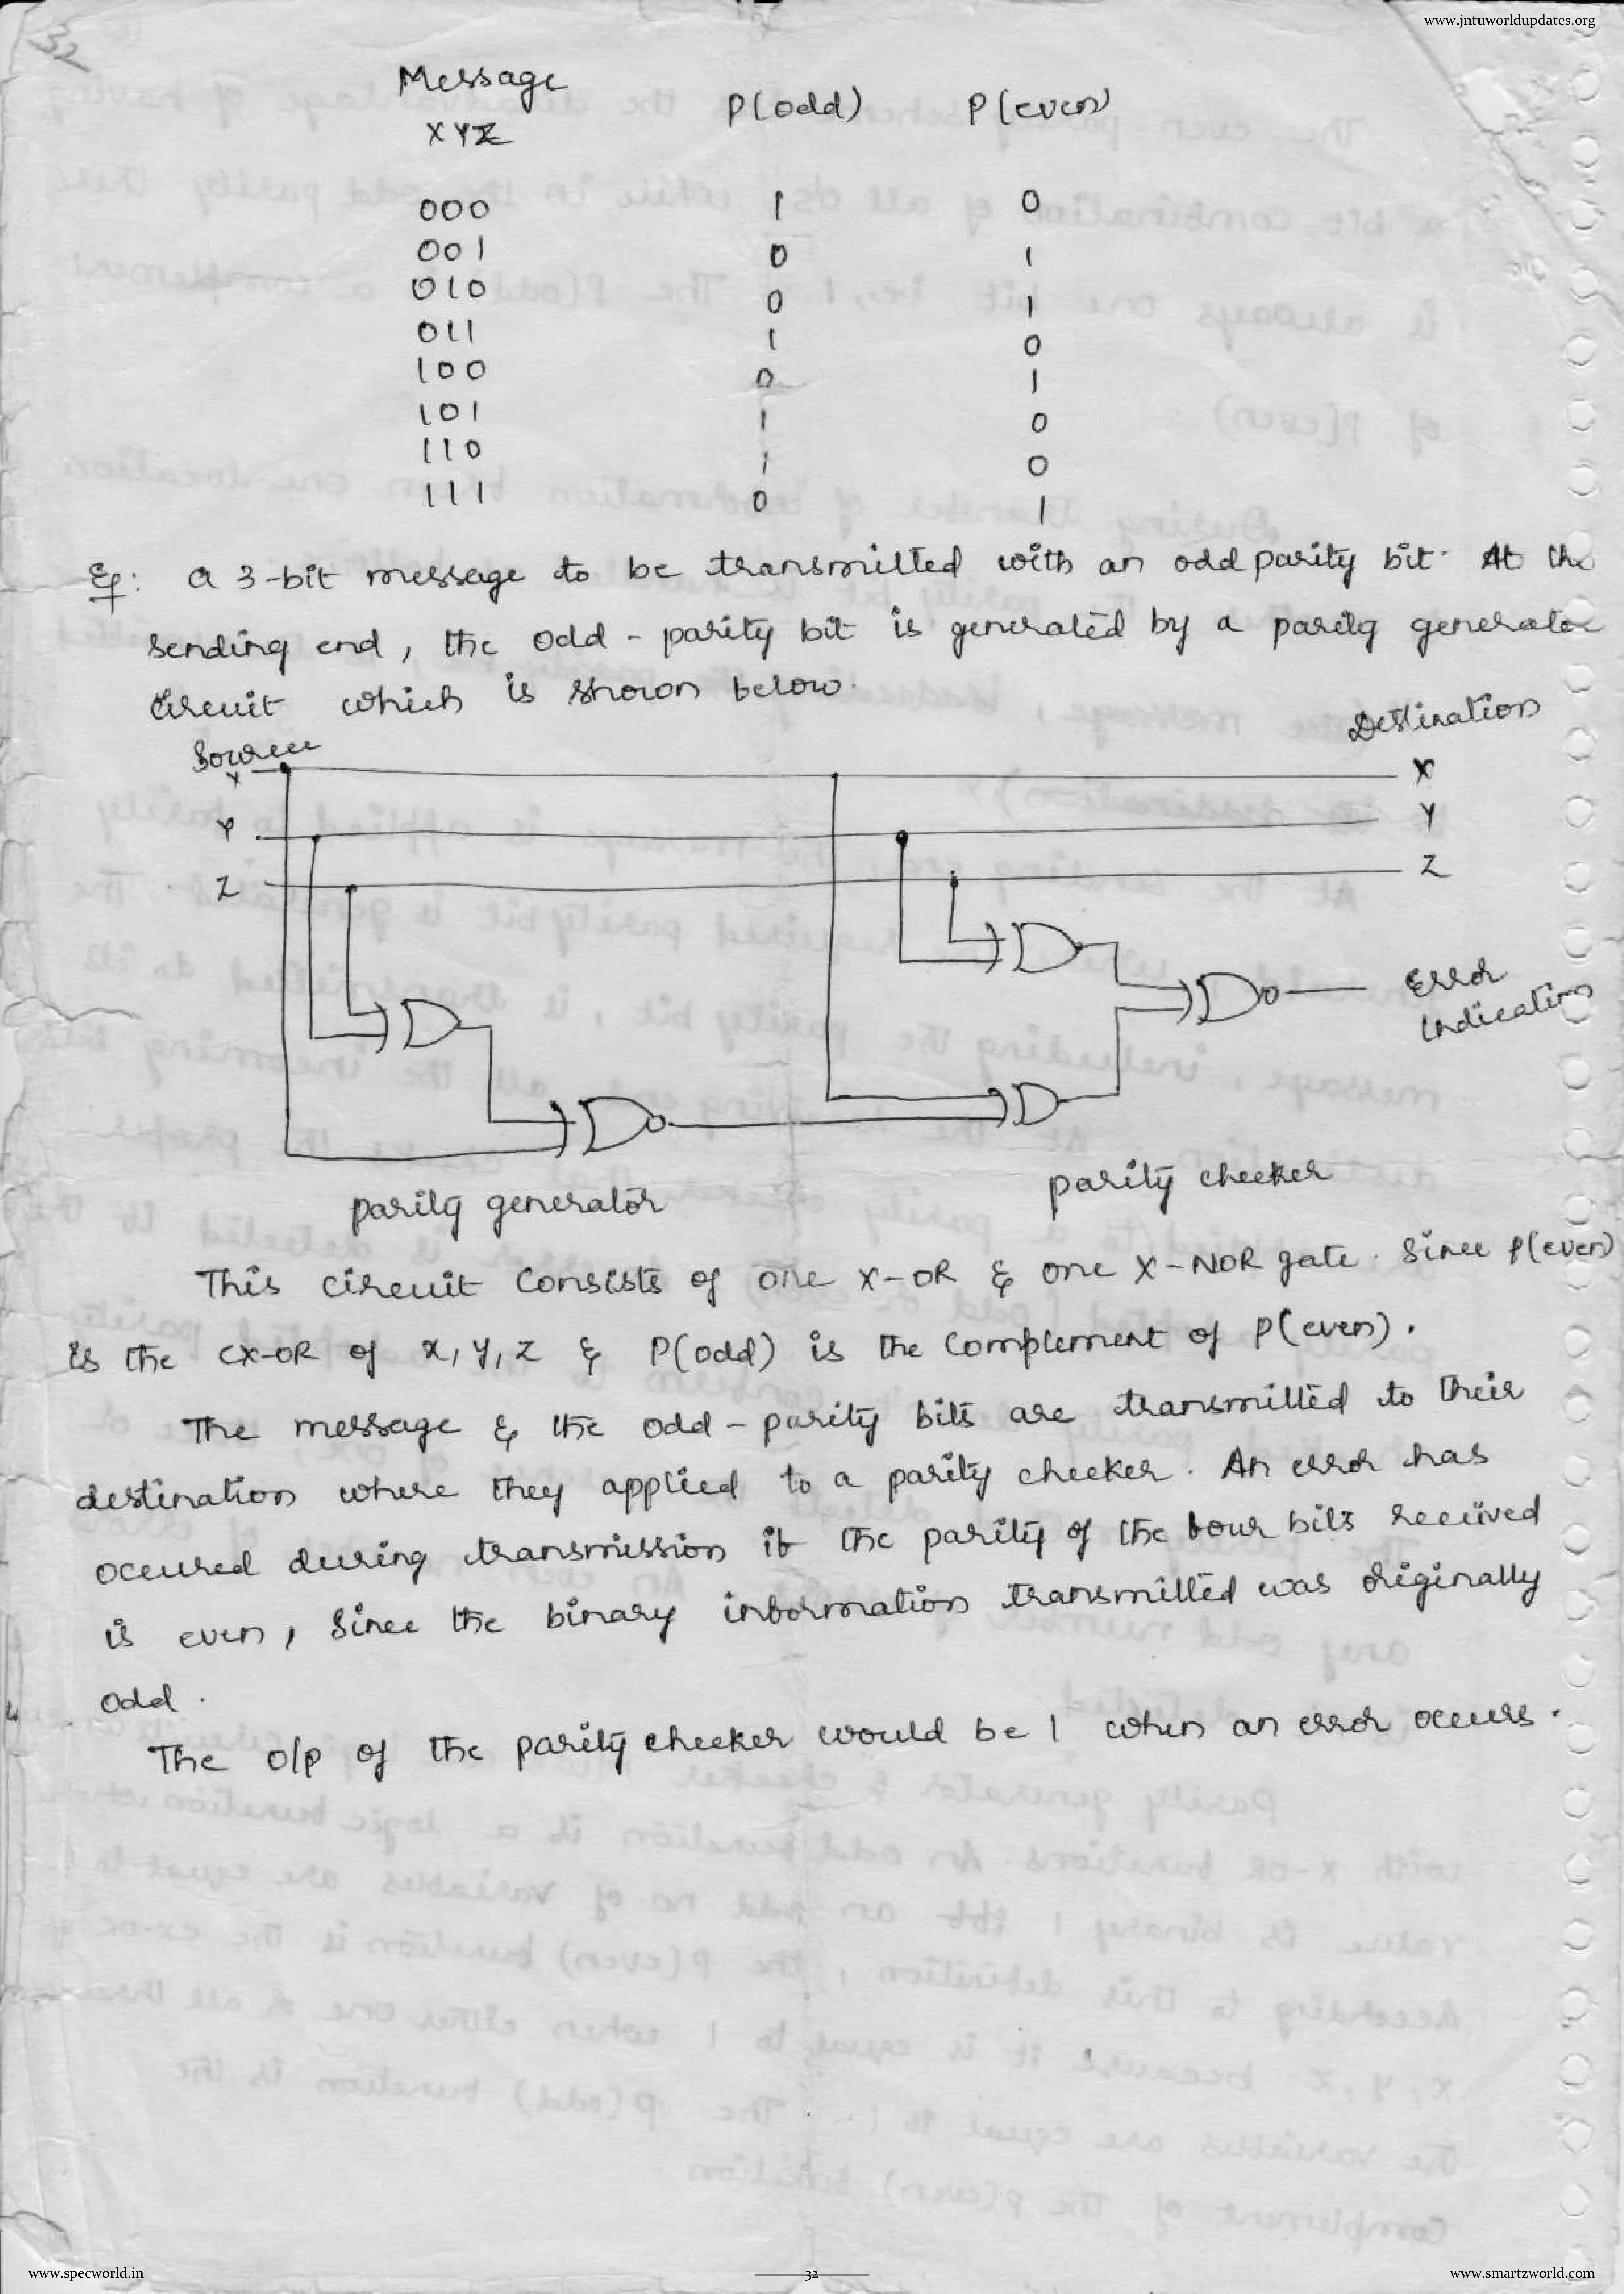 www.jntuworldupdates.org
32
Message P(odd) P(even)
XYZ
000 1 0
001 0 1
010 0 1
011 1 0
100 0 1
101 1 0
110 1 0
111 0 1
Eg: A 3-bit message to be transmitted with an odd parity bit. At the
sending end, the odd-parity bit is generated by a parity generator
circuit which is shown below.
Source Destination
X X
Y Y
Z Z
Error
Indication
parity generator parity checker
This circuit consists of one X-OR & one X-NOR gate. Since P(even)
is the EX-OR of X, Y, Z & P(odd) is the complement of P(even).
The message & the odd-parity bits are transmitted to their
destination where they applied to a parity checker. An error has
occured during transmission if the parity of the four bits received
is even, since the binary information transmitted was originally
odd.
The o/p of the parity checker would be 1 when an error occurs.
www.specworld.in 32 www.smartzworld.com